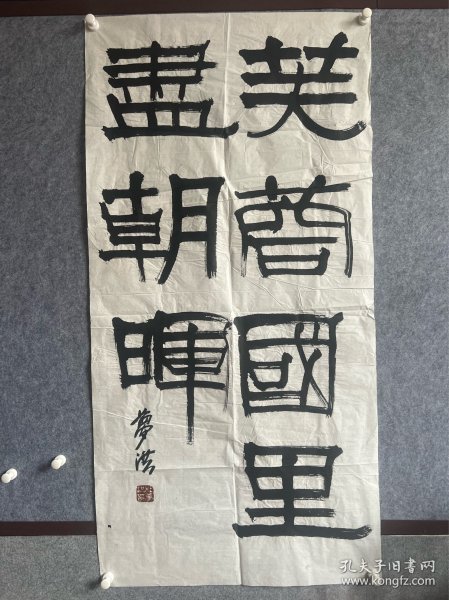 芙蓉國里
盡朝暉
夢洪
孔夫子旧书网
www.kongfz.com